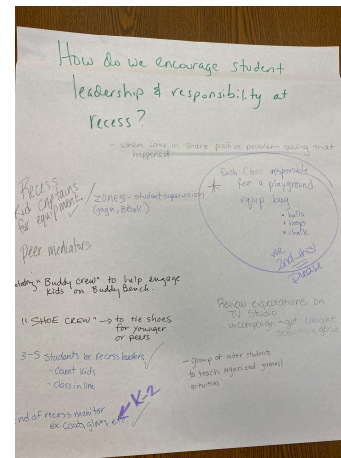 How do we encourage student
leadership & responsibility at
recess?
- when come in share positive problem solving that
happened
Recess
Kid Captains
for equipment
ZONES - student supervision
(gaga, BBall)
Each Class responsible
for a playground
equip bag
• balls
• hoops
• chalk
we
2nd this!
please
Peer mediators
"Buddy crew" to help engage
kids on Buddy Bench.
"SHOE CREW" → to tie shoes
for younger
or peers
Review expectations on
TV Studio
campaign - got caught
3-5 Students be recess leaders
- count kids
- class in line
- group of older students
to teach organized games/
activities
K-2
End of recess monitor
ex: coats, gloves